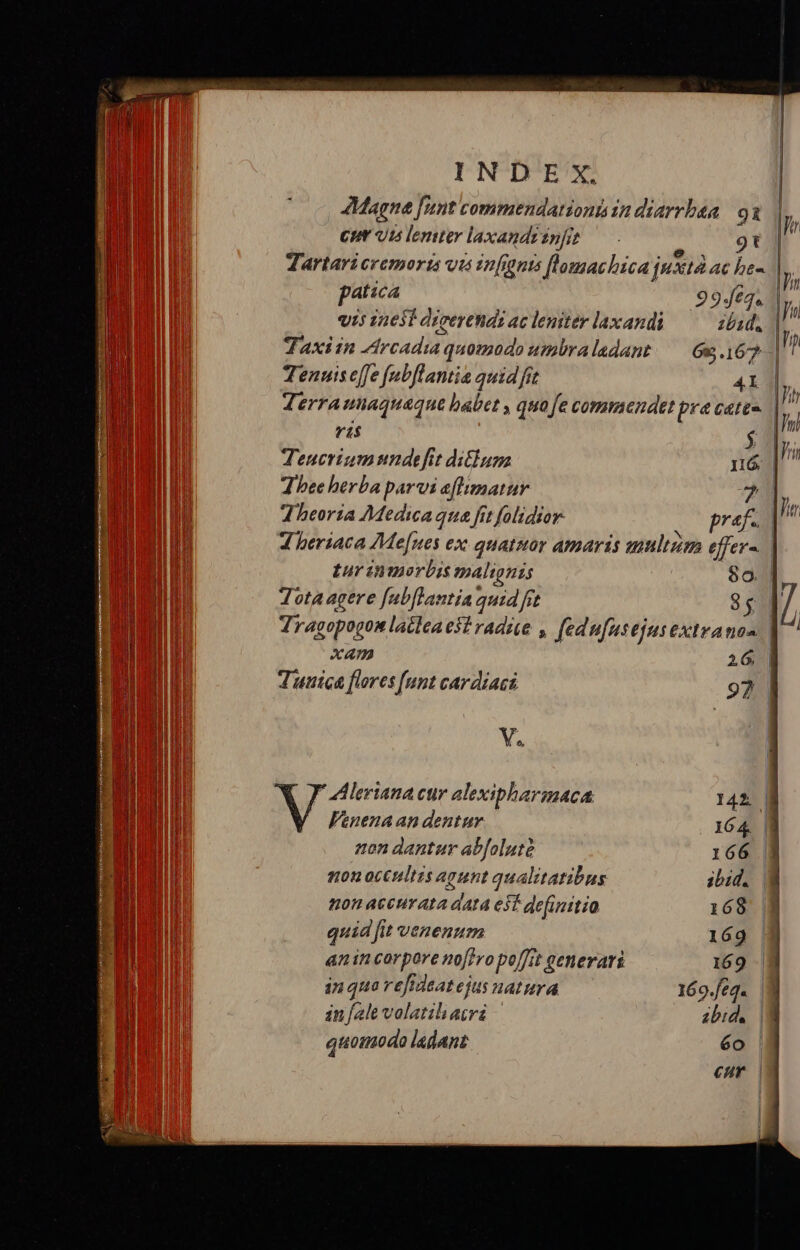 INDEX.
Magnæ ſunt commendationis in diarrhæa 91
cur vis leniter laxandi inſit 91
Tartari cremoris vis inſignis ſtomachica juxtà ac he-
patica 99.ſeq.
vis ineſt digerendi ac leniter laxandi ibid.
Taxi in Arcadia quomodo umbra lædant 66.167
Tenuis eſſe ſubſtantiæ quid ſit 41
Terra unaquæque habet, quo ſe commendet præ cæte-
ris 5
Teucrium unde ſit dictum 116
Thee herba parvi æſtimatur 7
Theoria Medica quæ ſit ſolidior præf.
Theriaca Meſues ex quatuor amaris multùm effer-
tur in morbis malignis 80
Tota agere ſubſtantia quid ſit 85
Tragopogon lactea est radice, ſed uſus ejus extra no-
xam 26
Tunicæ flores ſunt cardiaci 97
V.
VAleriana cur alexipharmaca 142
Venena an dentur 164
non dantur abſolutè 166
non occultis agunt qualitatibus ibid.
non accurata data est definitio 168
quid ſit venenum 169
an in corpore noſtro poſſit generari 169
in quo reſideat ejus natura 169.ſeq.
in ſale volatili acri ibid.
quomodo lædant 60
cur